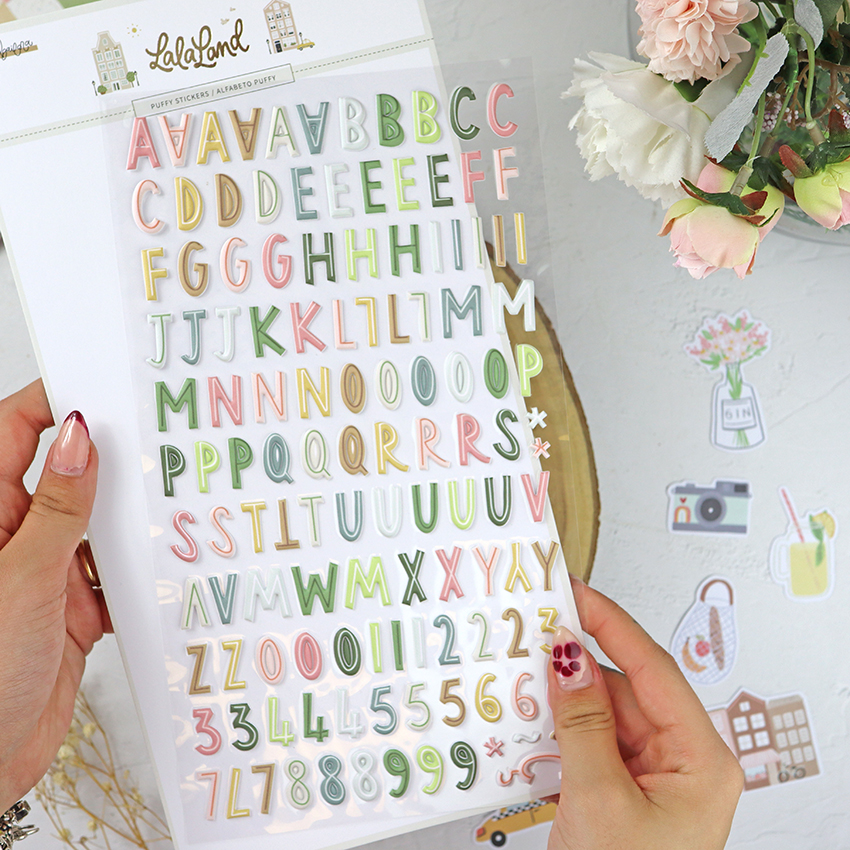 LaLaLand
PUFFY STICKERS / ALFABETO PUFFY
A A A A A A B B B C C
C D D D D E E E E F F
F G G G H H H I I I I
J J J K K L L L L M M
M N N N O O O O O O P
P P P Q Q Q R R R S *
S S S T T T U U U U U V *
V V M W W X X Y Y Y Y
Z Z O O O 1 1 1 2 2 2 3
3 3 4 4 4 5 5 5 6 6
7 7 7 8 8 8 9 9 9 *
GIN